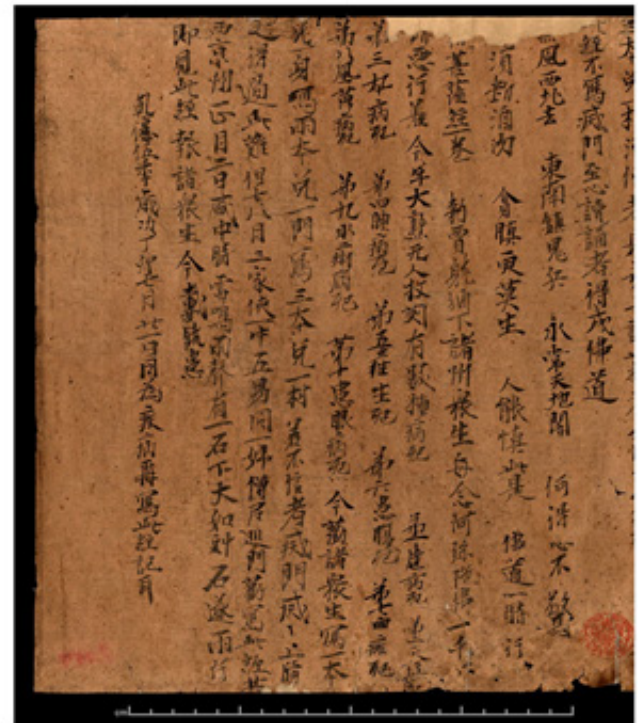 經不寫滅門至心讀誦者得成佛道
風西北去 東南鎮鬼兵 永常天地閣 何得心不驚
須斷酒肉 貪瞋更莫生 人能慎此是 佛道一時行
菩薩經一卷 勅賈耽頒下諸州眾生每念阿弥陁佛一千
惡行善今年大熟无人收刈有數種病死 弟一
弟三卒病死 弟四腫病死 弟五產生死 弟六患腹死 弟七血癰死
弟八風黃病死 弟九水痢病死 弟十患眼病死 今勸諸眾生寫一本
免一身寫兩本免一門寫三本免一村若不信者滅門門上牓
之得過此難但看八月三家使一牛五男同一婦僧尼巡門勸寫此經其
西京州正月二日盛中時雷鳴雨聲有一石下大如斗石遂兩片
即見此經報諸眾生今載饒患
乾德伍年歲次丁卯七月廿一日因為疾病再寫此經記耳